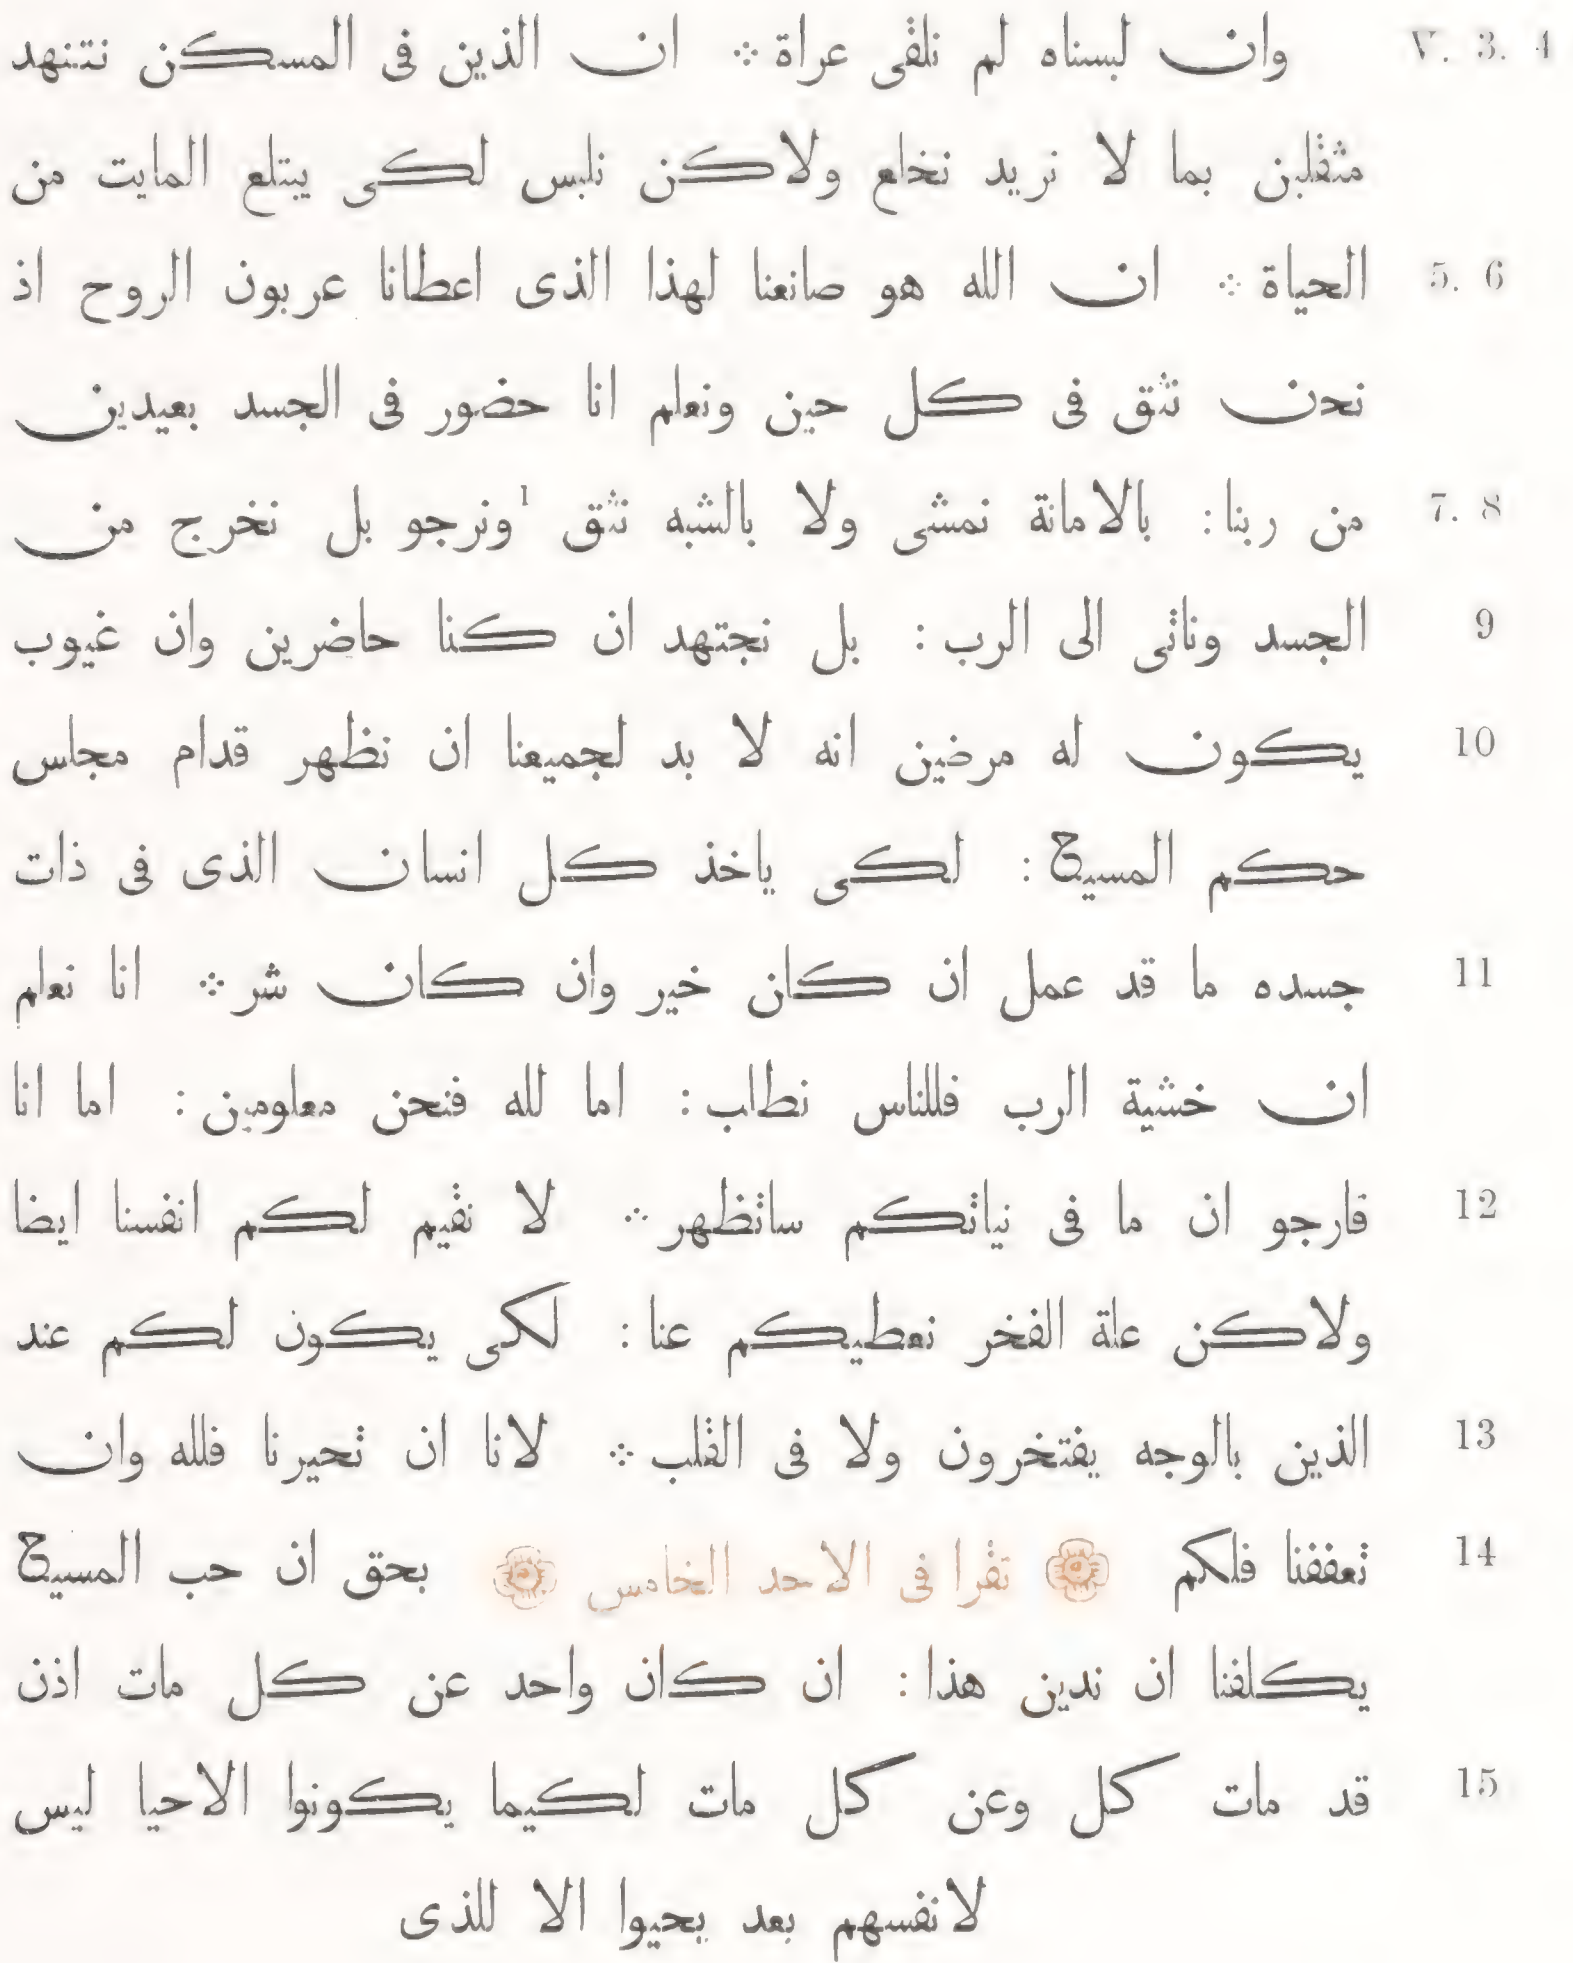 V. 3. 4 وان لبسناه لم نلقى عراة ۞ ان الذين فى المسكن نتنهد
مثقلين بما لا نريد نخلع ولاكن نلبس لكى يبتلع المايت من
5. 6 الحياة ۞ ان الله هو صانعنا لهذا الذى اعطانا عربون الروح اذ
نحن نثق فى كل حين ونعلم انا حضور فى الجسد بعيدين
7. 8 من ربنا : بالامانة نمشى ولا بالشبه نثق ¹ونرجو بل نخرج من
9 الجسد وناتى الى الرب : بل نجتهد ان كنا حاضرين وان غيوب
10 يكون له مرضين انه لا بد لجميعنا ان نظهر قدام مجلس
حكم المسيح : لكى ياخذ كل انسان الذى فى ذات
11 جسده ما قد عمل ان كان خير وان كان شر ۞ انا نعلم
ان خشية الرب فللناس نطلب : اما لله فنحن معلومين : اما انا
12 قارجو ان ما فى نياتكم ساتظهر ۞ لا نقيم لكم انفسنا ايضا
ولاكن علة الفخر نعطيكم عنا : لكى يكون لكم عند
13 الذين بالوجه يفتخرون ولا فى القلب ۞ لانا ان تحيرنا فلله وان
14 تعففنا فلكم تقرا فى الاحد الخامس بحق ان حب المسيح
يكلفنا ان ندين هذا : ان كان واحد عن كل مات اذن
15 قد مات كل وعن كل مات لكيما يكونوا الاحيا ليس
لانفسهم بعد يحيوا الا للذى